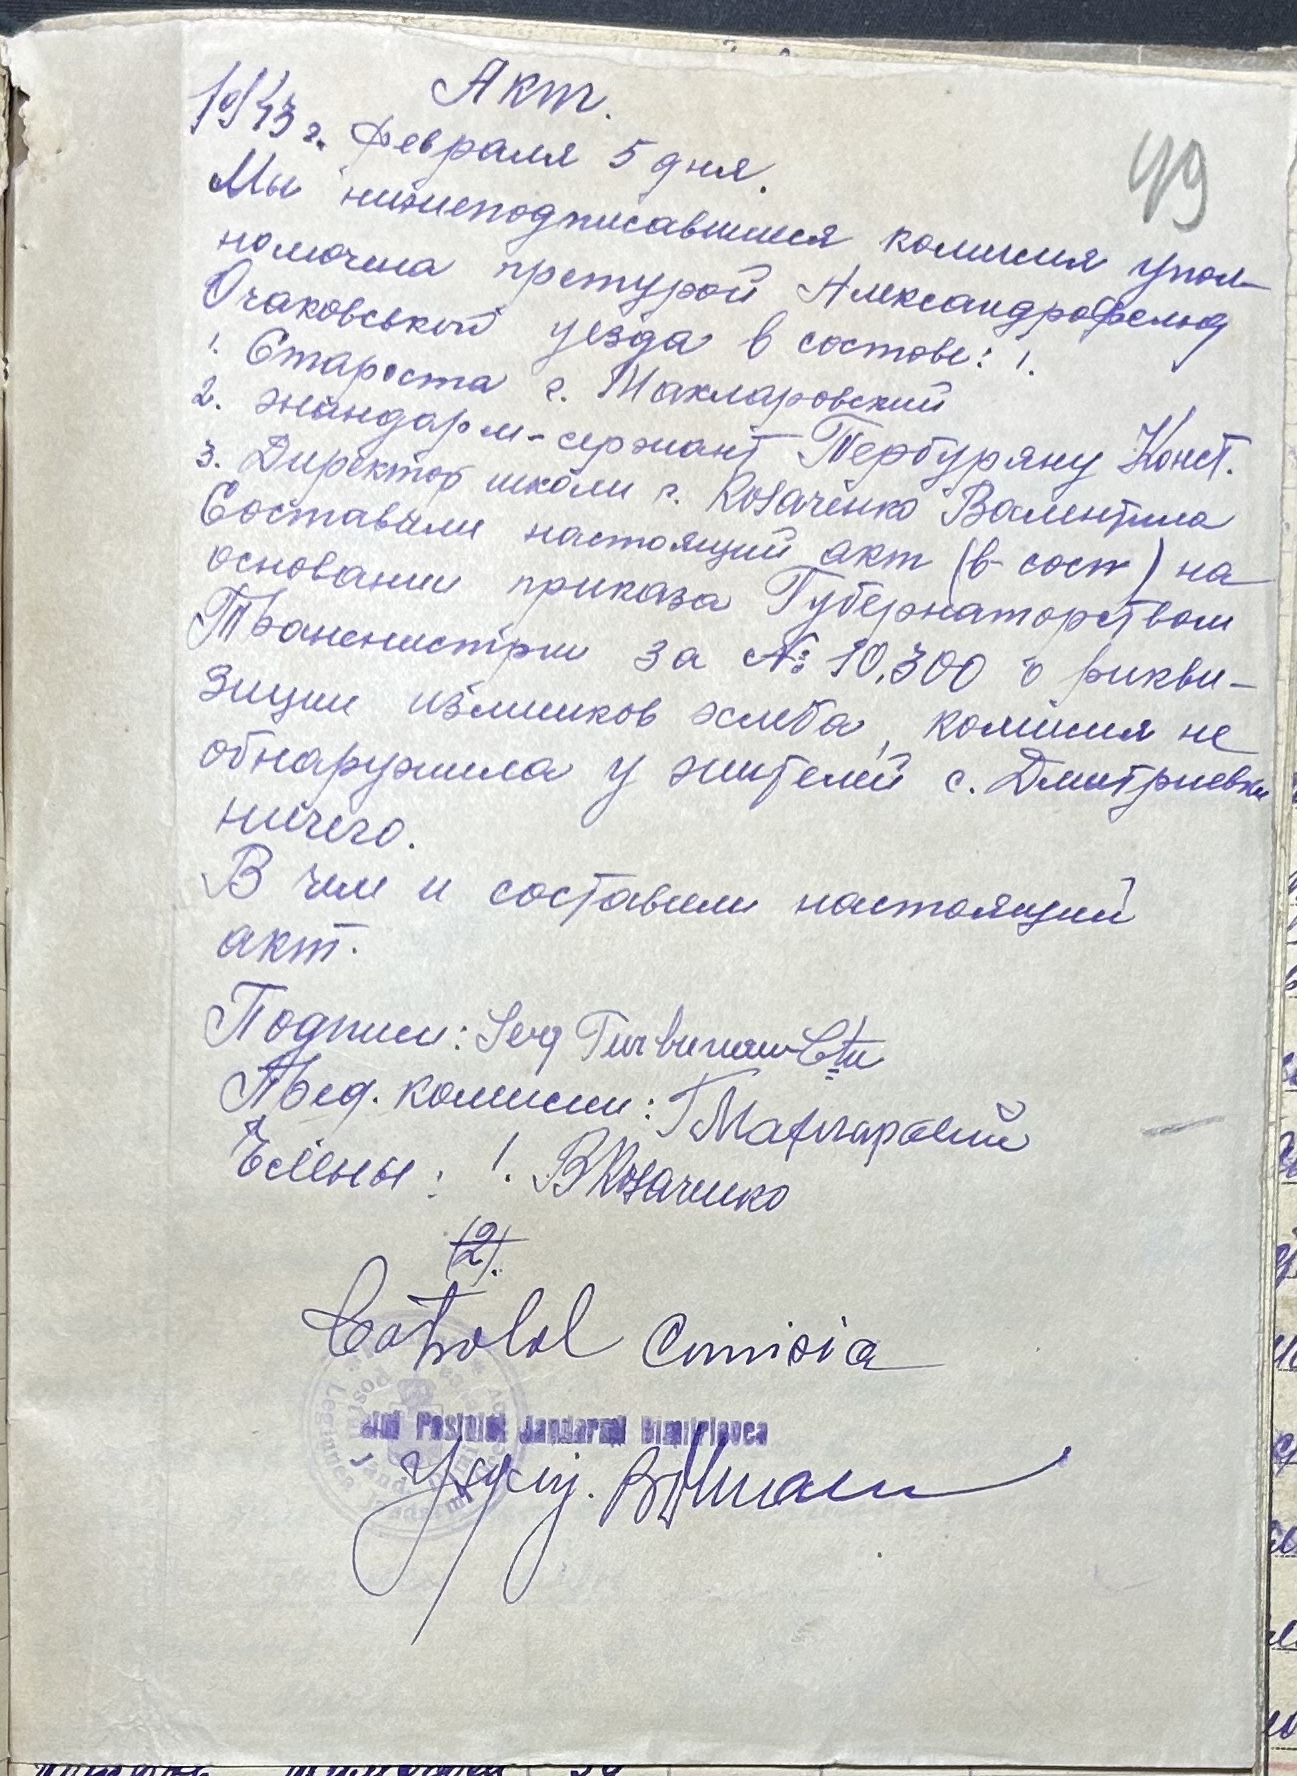 Акт.
49
1943 г. Февраля 5 дня.
Мы нижеподписавшиеся комисия упол-
номочена претурой Александрофельд
Очаковський уезда в состове: 1.
1. Староста с. Махларовский
2. жандарм-сержант Тербуряну Конст.
3. Директор школи с. Козаченко Валентина
Составили настоящий акт (в сост) на
основании приказа Губернаторством
Транснистрии за №: 10,300 о рикви-
зиции излишков хлеба, комисия не
обнаружила у жителей с. Дмитриевки
ничего.
В чем и составили настоящий
акт.
Подписи: Serg Turbureanu Ctin
Пред. комисии:
Члены: 1. ВКозаченко
(2).
Comisia
Postului Jandarmi Dimitrievca
Legiunea Jandarmi